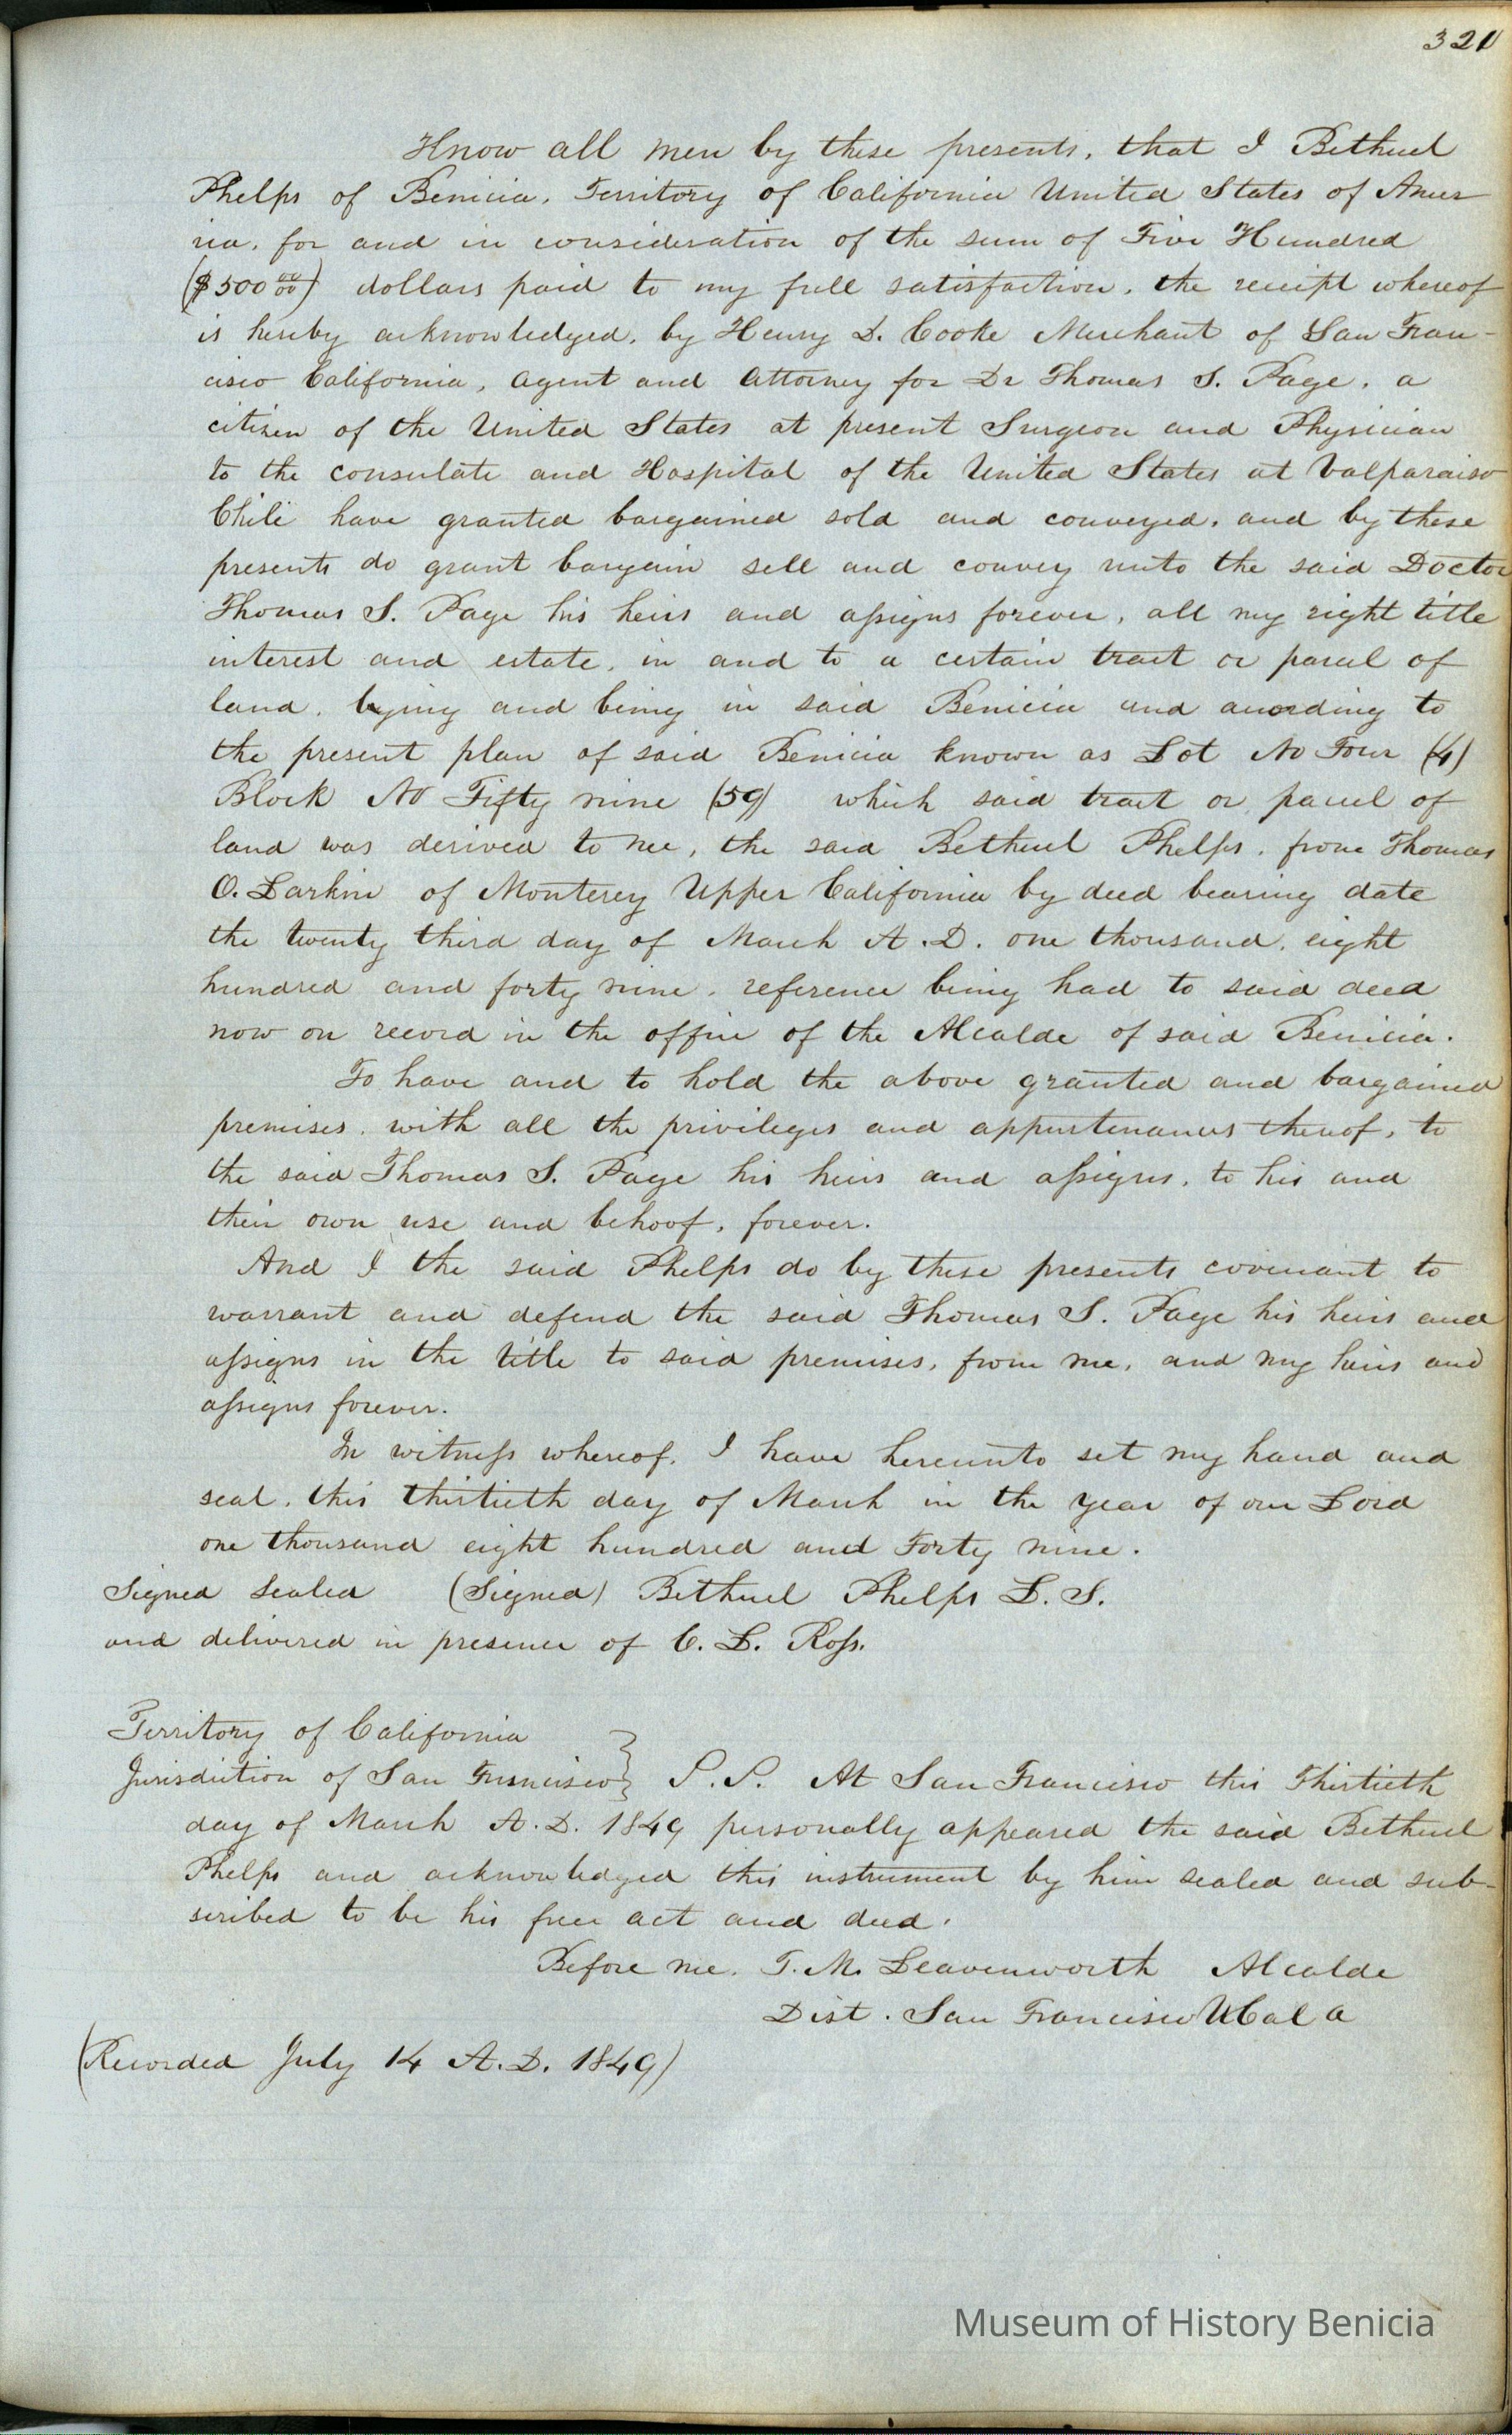 321
Know all men by these presents, that I Bethuel
Phelps of Benicia, Territory of California United States of Amer
ica, for and in consideration of the sum of Five Hundred
($500 00/00) dollars paid to my full satisfaction, the receipt whereof
is hereby acknowledged, by Henry D. Cooke Merchant of San Fran-
cisco California, Agent and Attorney for Dr Thomas S. Page, a
citizen of the United States at present Surgeon and Physician
to the consulate and Hospital of the United States at Valparaiso
Chili have granted bargained sold and conveyed, and by these
presents do grant bargain sell and convey unto the said Doctor
Thomas S. Page his heirs and assigns forever, all my right title
interest and estate, in and to a certain tract or parcel of
land, lying and being in said Benicia and according to
the present plan of said Benicia known as Lot No Four (4)
Block No Fifty nine (59) which said tract or parcel of
land was derived to me, the said Bethuel Phelps, from Thomas
O. Larkin of Monterey Upper California by deed bearing date
the twenty third day of March A.D. one thousand, eight
hundred and forty nine, reference being had to said deed
now on record in the office of the Alcalde of said Benicia.
To have and to hold the above granted and bargained
premises, with all the privileges and appurtenances thereof, to
the said Thomas S. Page his heirs and assigns, to his and
their own use and behoof, forever.
And I the said Phelps do by these presents covenant to
warrant and defend the said Thomas S. Page his heirs and
assigns in the title to said premises, from me, and my heirs and
assigns forever.
In witness whereof, I have hereunto set my hand and
seal, this thirtieth day of March in the year of our Lord
one thousand eight hundred and Forty nine.
Signed Sealed (Signed) Bethuel Phelps L. S.
and delivered in presence of C. L. Ross.
Territory of California
Jurisdiction of San Francisco } S.S. At San Francisco this Thirtieth
day of March A.D. 1849 personally appeared the said Bethuel
Phelps and acknowledged this instrument by him sealed and sub-
scribed to be his free act and deed.
Before me. T. M. Leavenworth Alcalde
Dist. San Francisco U Cal a
(Recorded July 14 A.D. 1849)
Museum of History Benicia